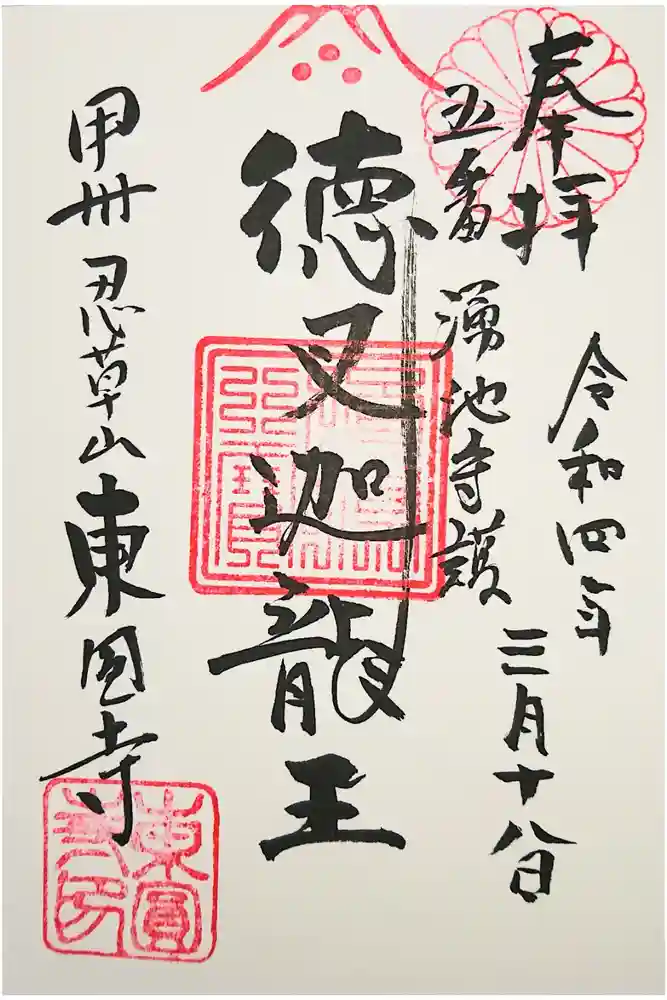 奉拝
令和四年
三月十八日
五番 湧池守護
徳叉迦龍王
甲州 忍草山 東圓寺
東圓寺印